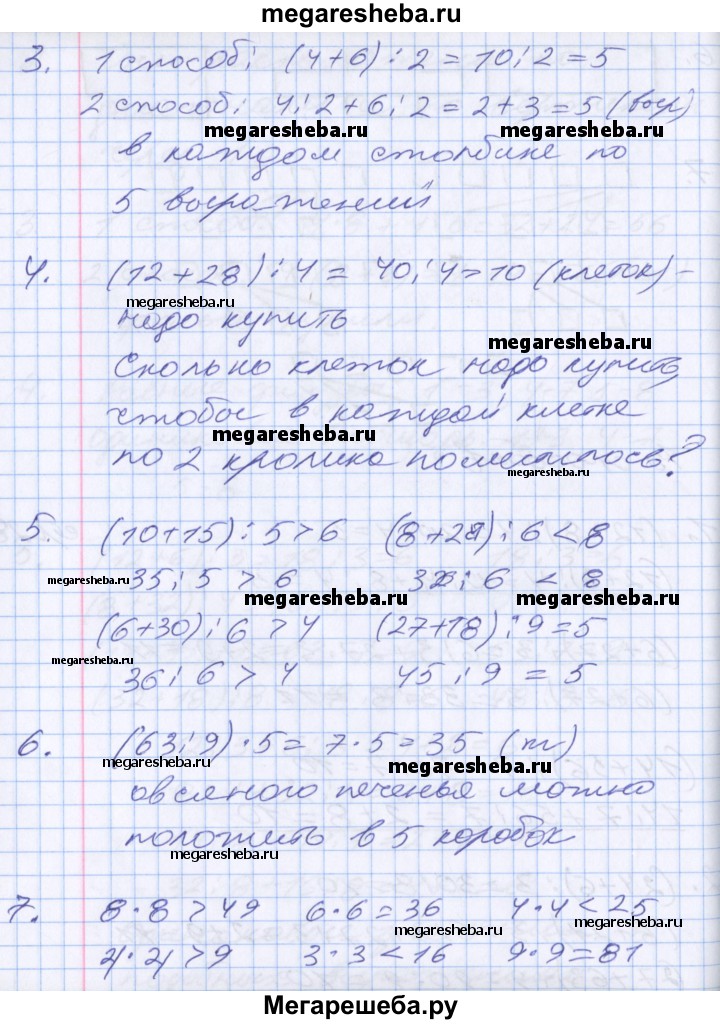 megaresheba.ru
3. 1 способ: (4+6):2=10:2=5
2 способ: 4:2+6:2=2+3=5 (выр)
megaresheba.ru megaresheba.ru
в каждом столбике по
5 выражений
4. (12+28):4= 40:4=10 (клеток)-
megaresheba.ru
надо купить
megaresheba.ru
Сколько клеток надо купить,
чтобы в каждой клетке
megaresheba.ru
по 2 кролика поместилось?
megaresheba.ru
5. (10+15):5>6 (8+28):6<8
megaresheba.ru 35:5 > 6 36:6 < 8
megaresheba.ru megaresheba.ru
(6+30):6>4 (27+18):9=5
megaresheba.ru
36:6>4 45:9=5
6. (63:9)·5=7·5=35 (п)
megaresheba.ru
овсяного печенья можно
положить в 5 коробок
megaresheba.ru
7. 8·8>49 6·6=36 4·4<25
megaresheba.ru
megaresheba.ru
3·3<16 9·9=81
Мегарешеба.ру